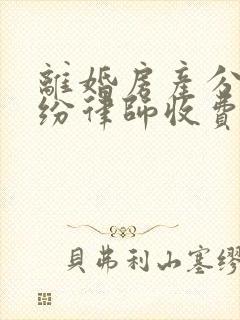 離婚房產分
紛律師收費
貝弗利山塞繆